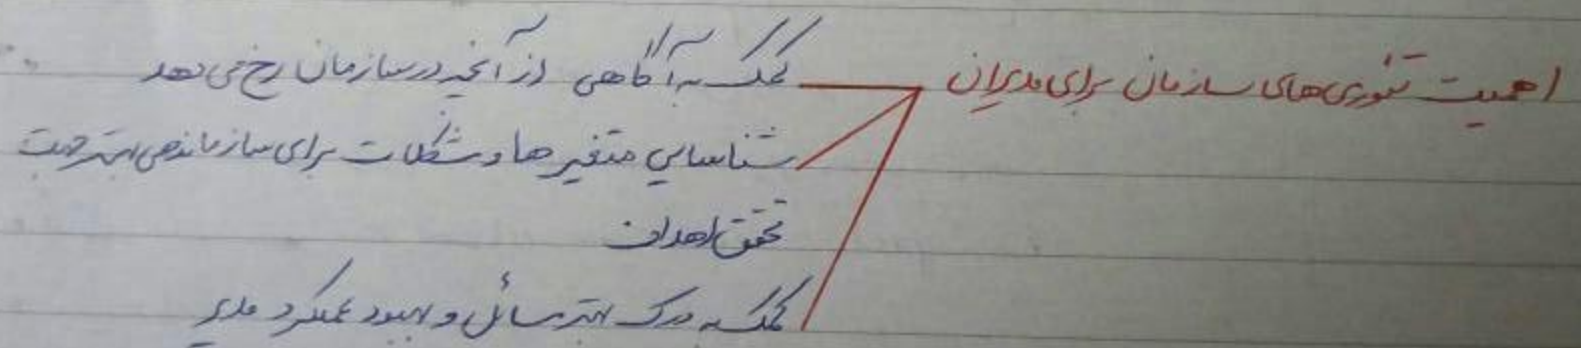 اهمیت تئوری‌های سازمان برای مدیران
کمک به آگاهی از آنچه در سازمان رخ می‌دهد
شناسایی متغیرها و مشکلات برای سازماندهی بهتر جهت
تحقق اهداف
کمک به درک بهتر مسائل و بهبود عملکرد مدیر